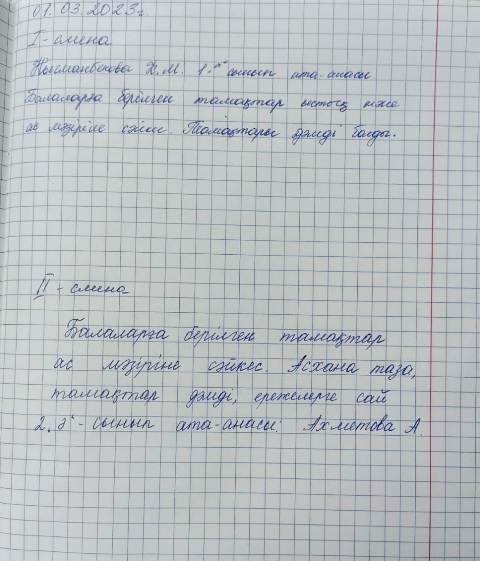 01.03.2023г
I - смена
Нығманбекова Х.М. 1 "А" сынып ата-анасы
Балаларға берілген тамақтар ыстық және
ас мәзіріне сәйкес. Тамақтары дәмді болды.
II - смена
Балаларға берілген тамақтар
ас мәзіріне сәйкес. Асхана таза,
тамақтар дәмді, ережелерге сай
2 - сынып ата-анасы: Ахметова А.